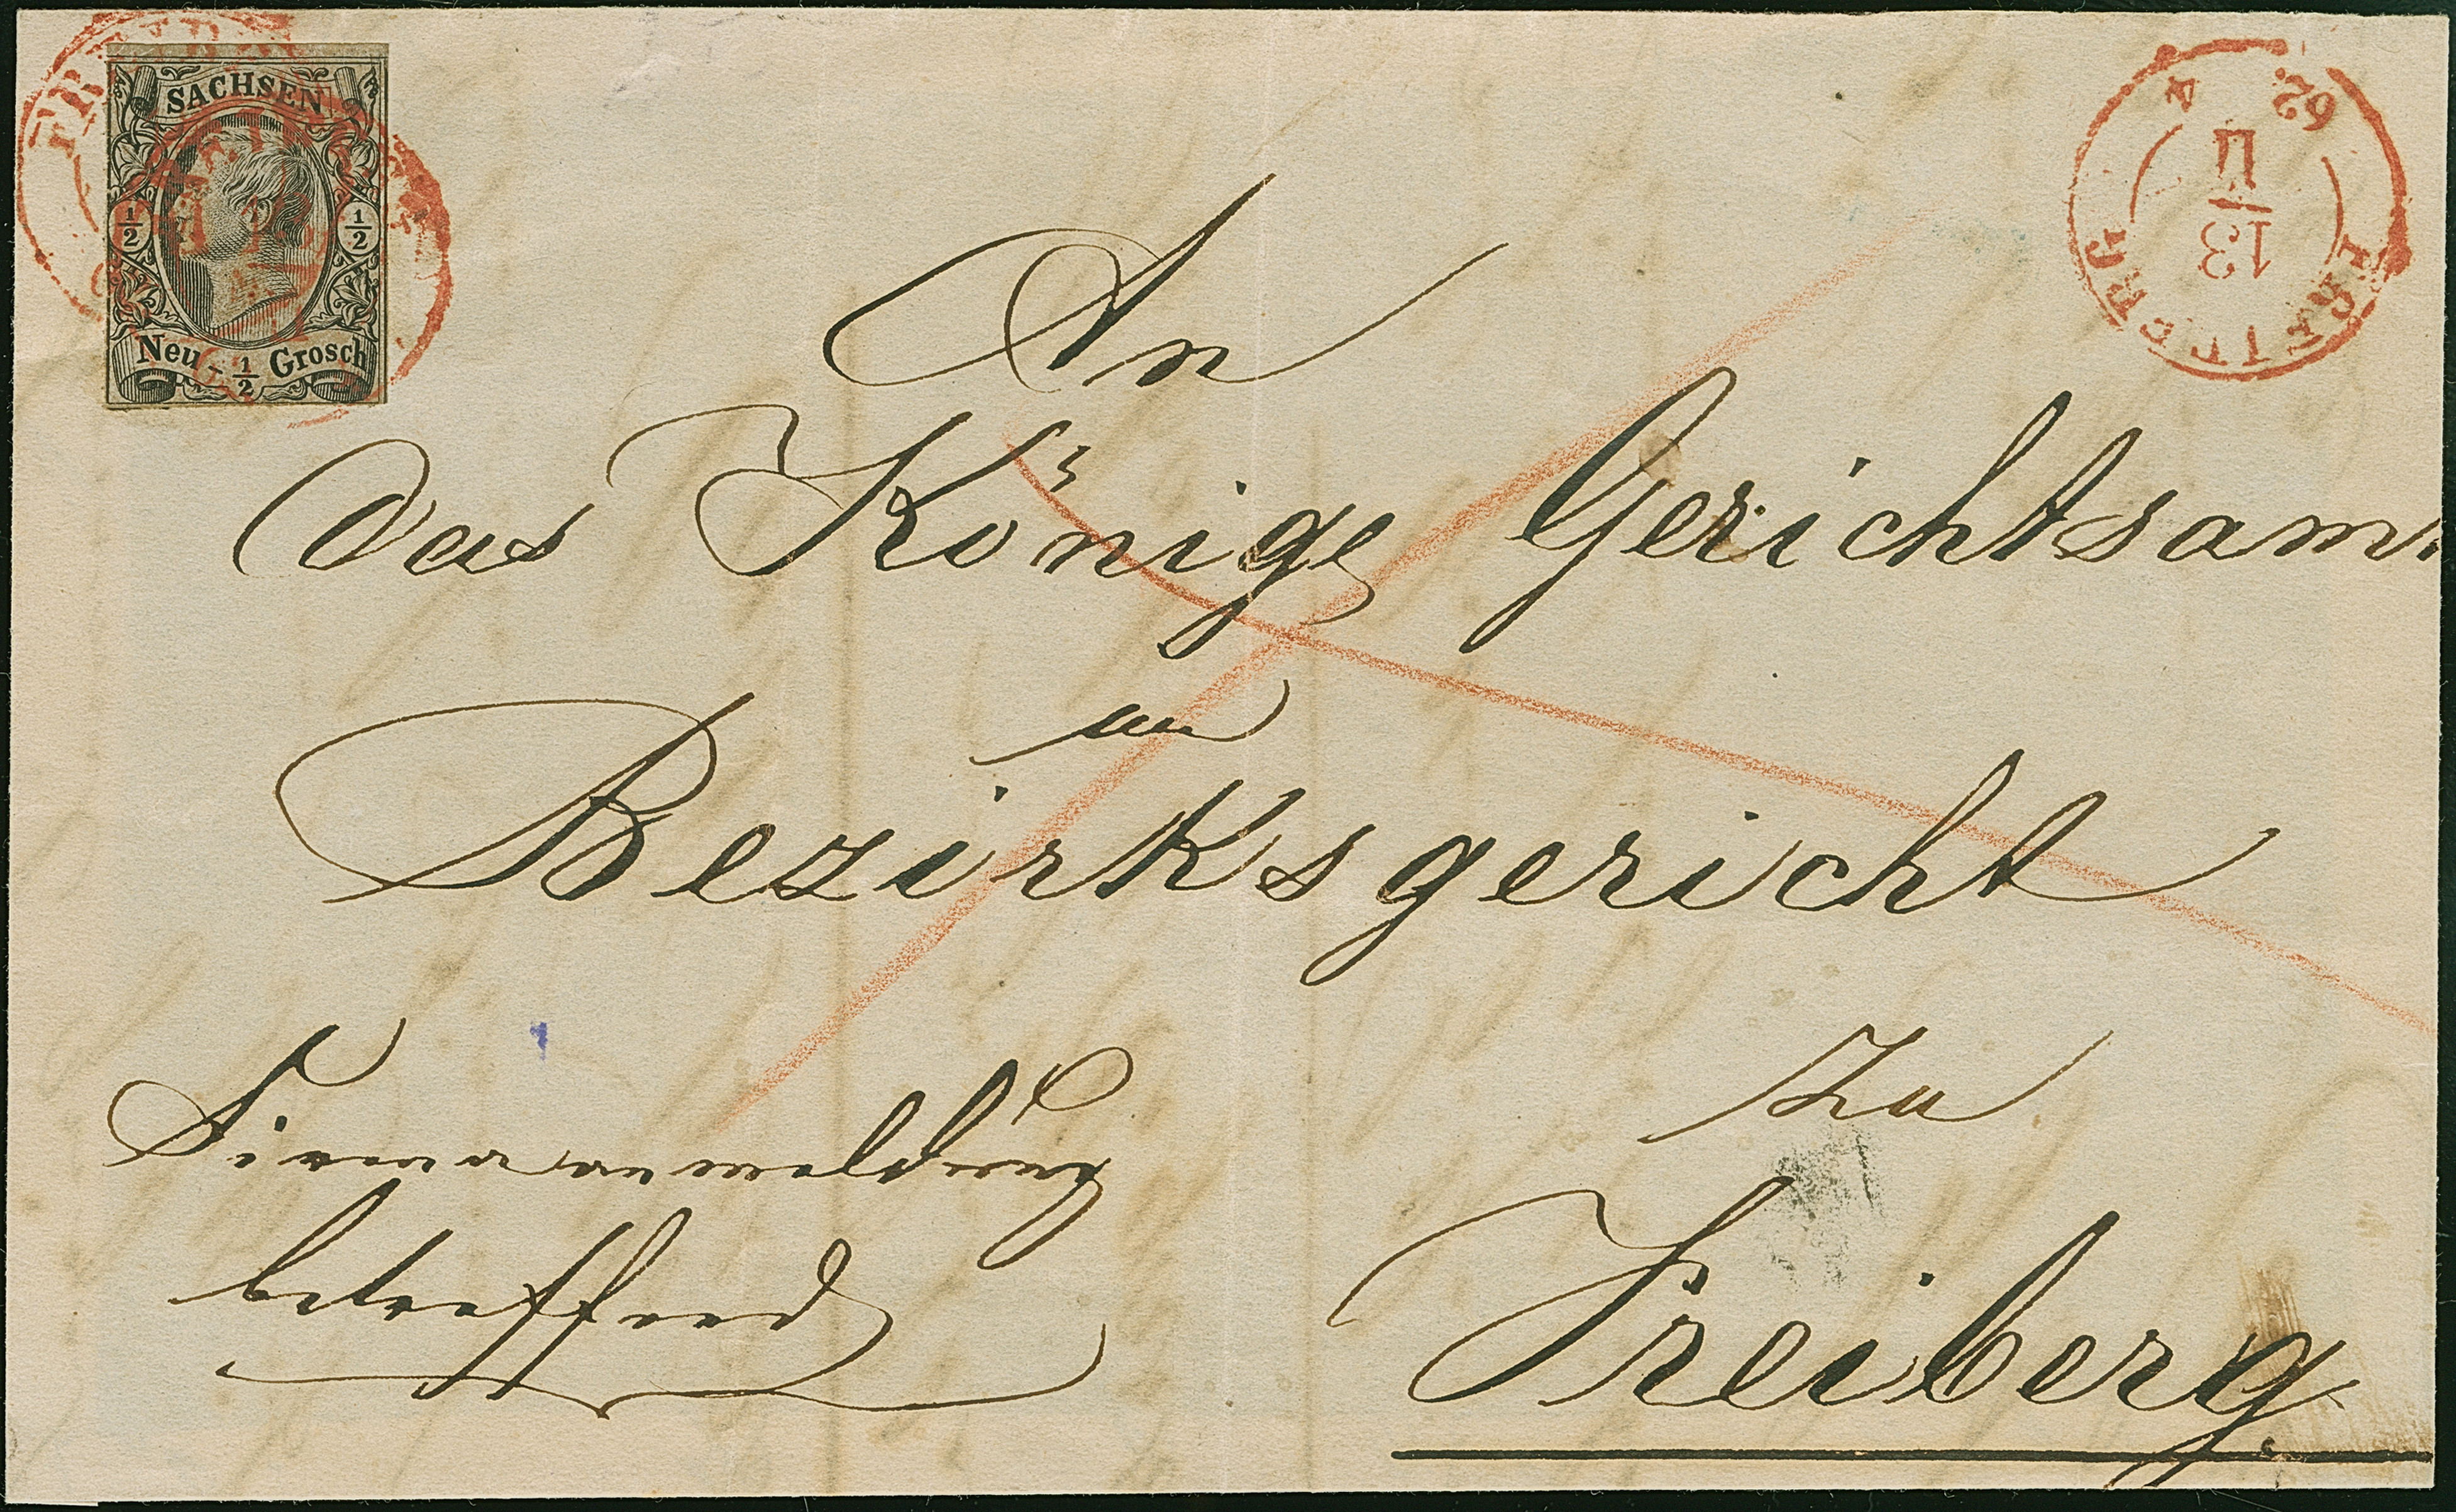 SACHSEN
1/2 1/2
Neu - 1/2 Grosch
62
II
13
An
das Königl Gerichtsamt
im
Bezirksgericht
zu
Freiberg.
Firmaanmeldung
betreffend